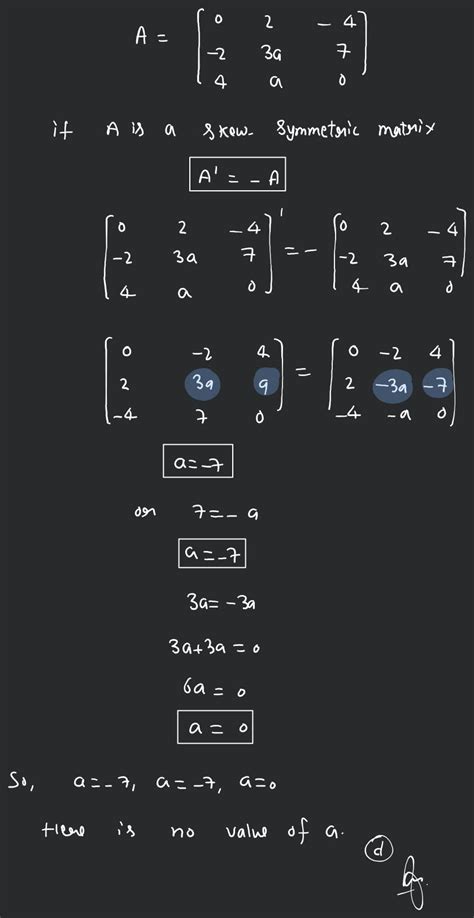 A = [ 0 2 -4
-2 3a 7
4 a 0 ]
if A is a skew symmetric matrix
A' = - A
[ 0 2 -4 ]' = - [ 0 2 -4 ]
[ -2 3a 7 ] [ -2 3a 7 ]
[ 4 a 0 ] [ 4 a 0 ]
[ 0 -2 4 ] = [ 0 -2 4 ]
[ 2 3a a ] [ 2 -3a -7 ]
[ -4 7 0 ] [ -4 -a 0 ]
a = -7
or 7 = - a
a = -7
3a = - 3a
3a + 3a = 0
6a = 0
a = 0
So, a = -7, a = -7, a = 0
Here is no value of a.
d